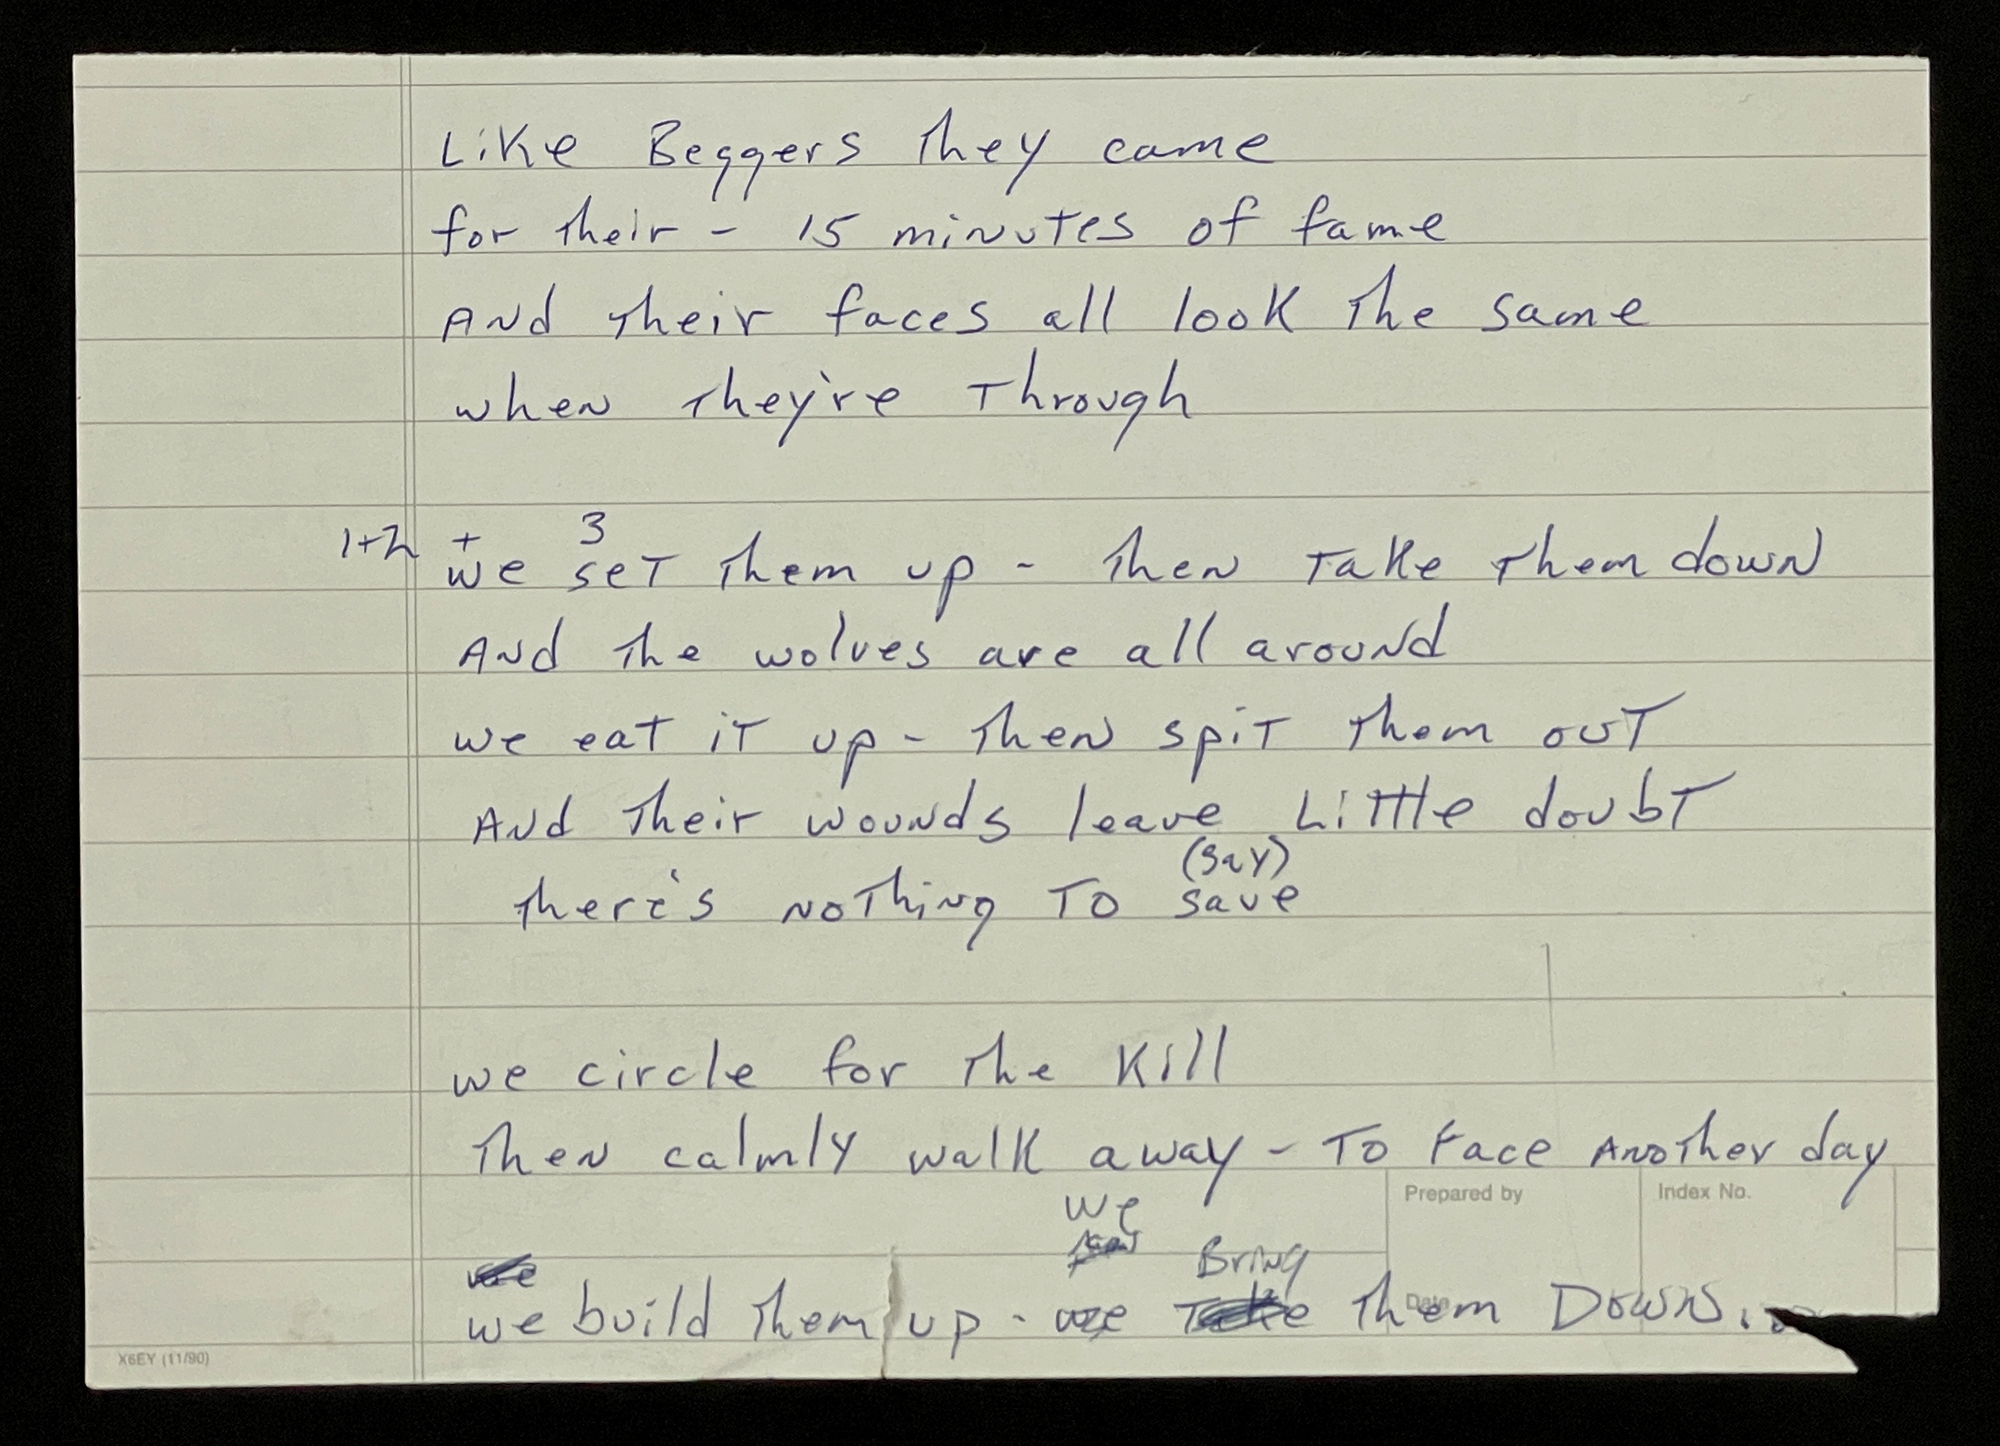 Like Beggers They came
for their - 15 minutes of fame
And their faces all look the same
when they're Through
1+2 + 3
we set them up - then Take Them down
And the wolves are all around
we eat it up - then spit them out
And their wounds leave Little doubt
(say)
there's nothing To save
we circle for the Kill
Then calmly walk away - To Face Another day
Prepared by
Index No.
we
Bring
we build them up - we Take them Down.
Date
X6EY (11/90)